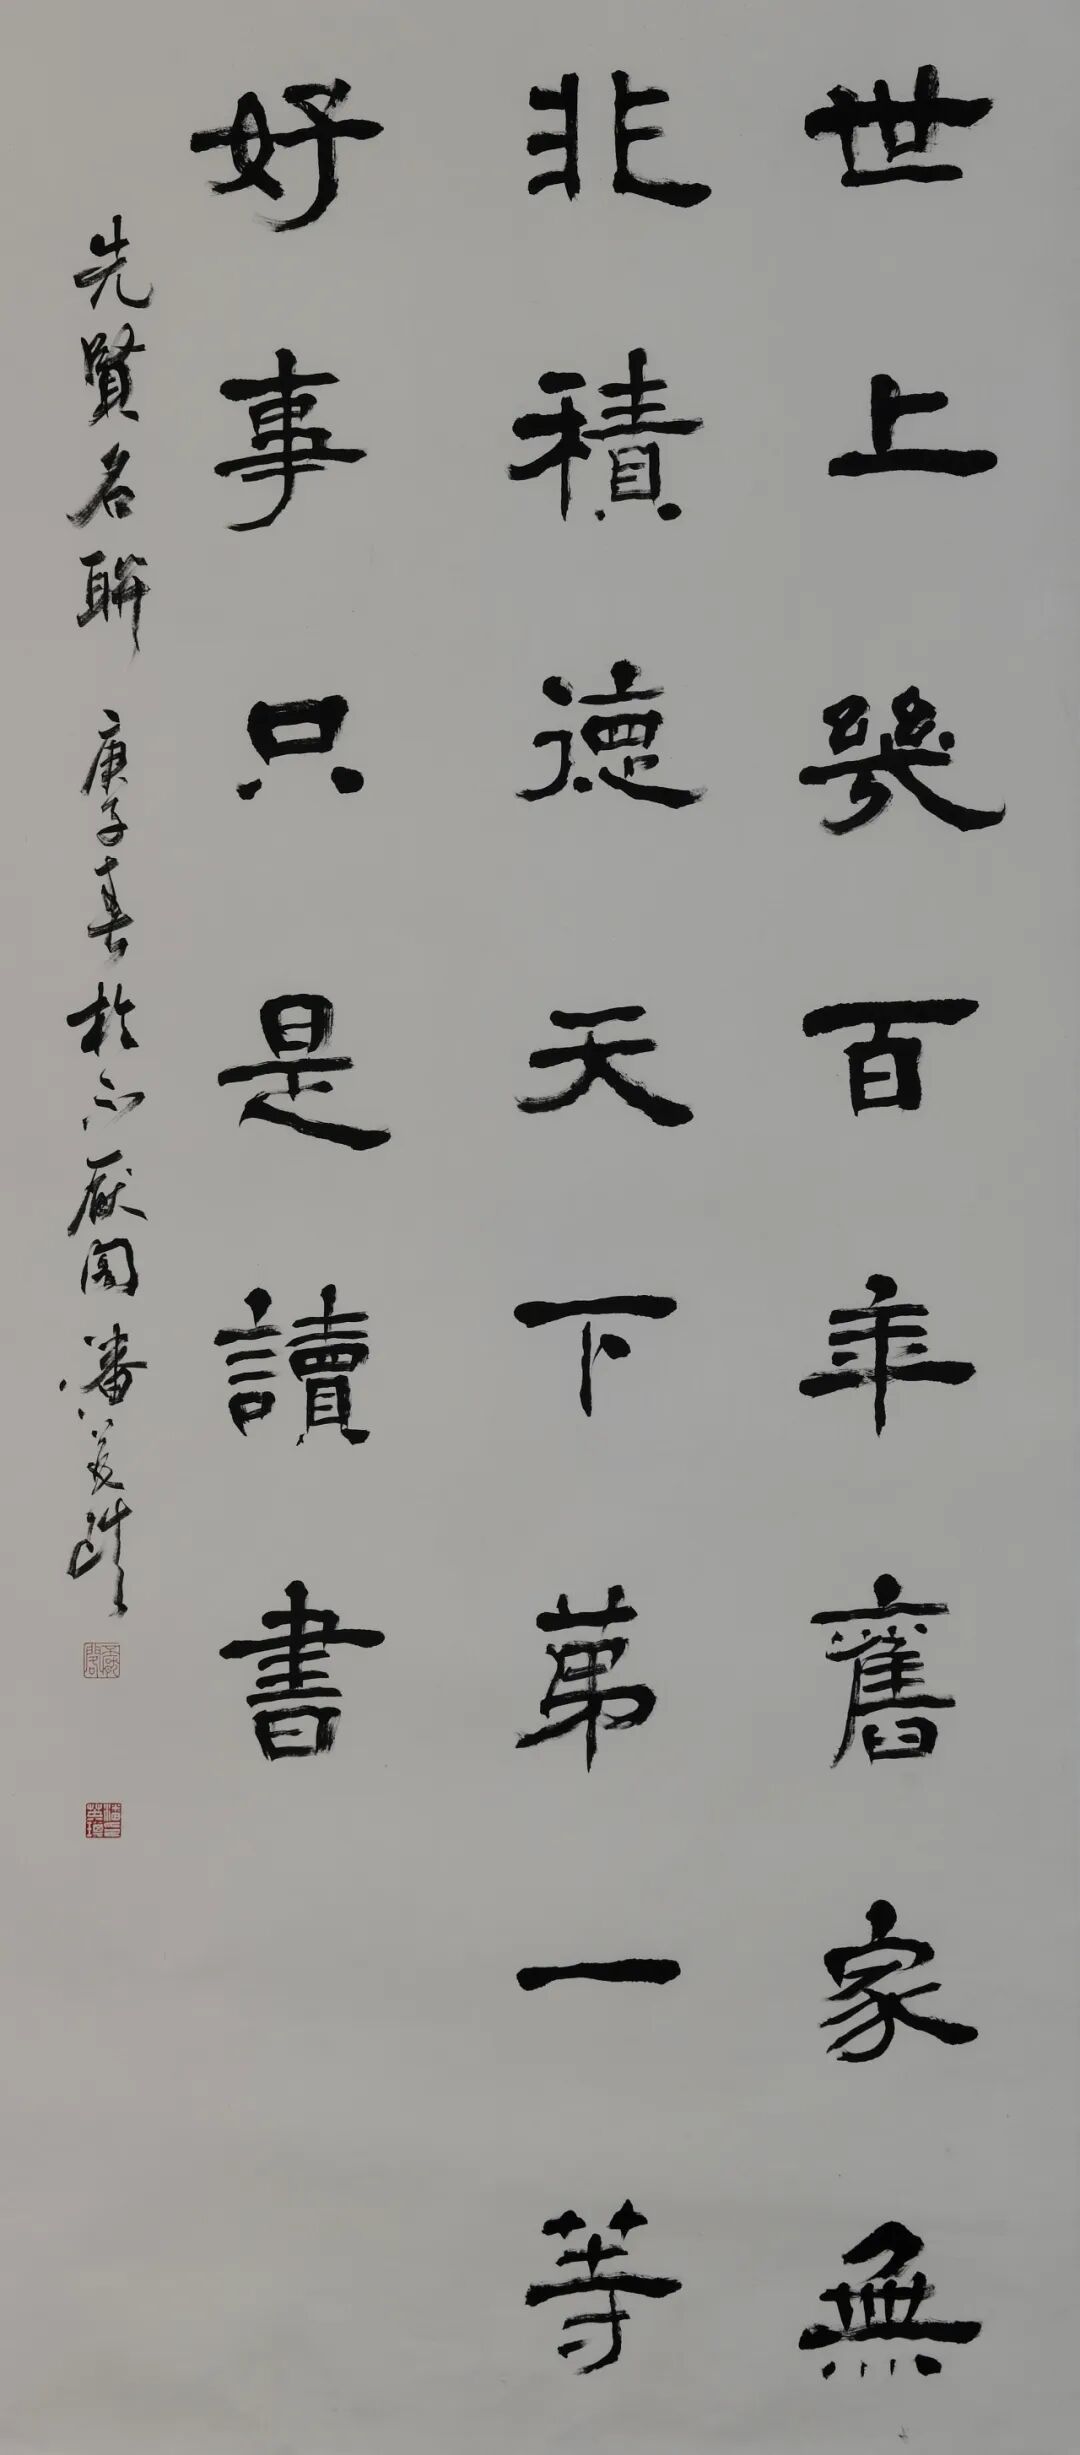 世上幾百年舊家無
非積德天下第一等
好事只是讀書
先賢名聯 庚子春於不厭閣 潘英